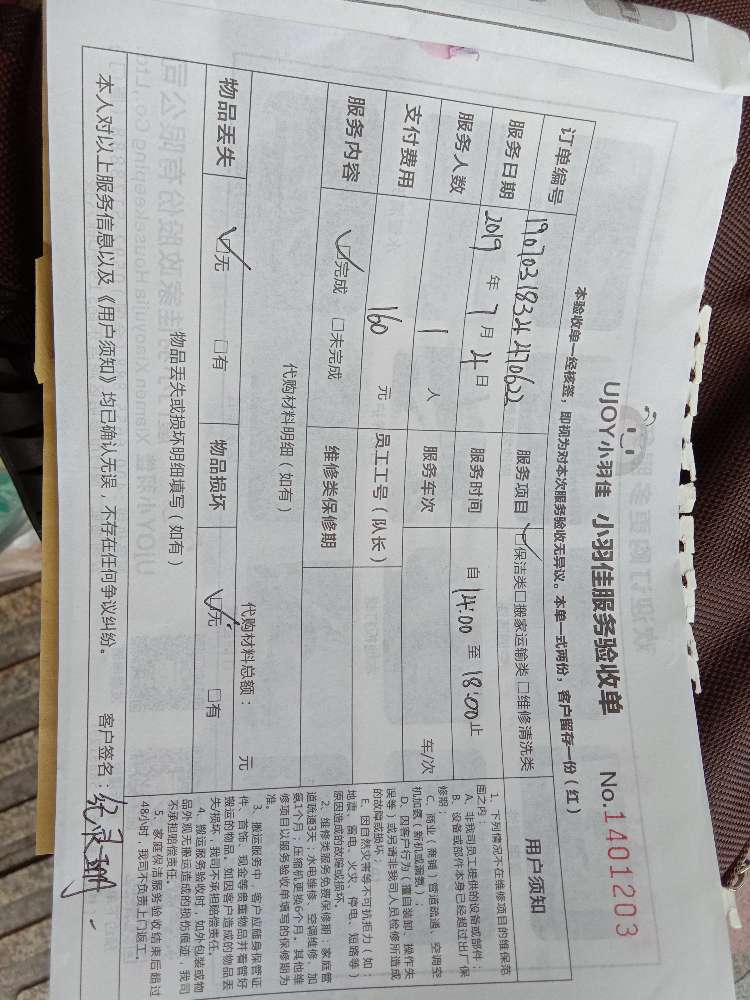 UJOY小羽佳 小羽佳服务验收单 No.1401203
本验收单一经核签，即视为对本次服务验收无异议。本单一式两份，客户留存一份（红）
订单编号 19070318342470622 服务项目 ☑保洁类□搬家运输类□维修清洗类
服务日期 2019年7月4日 服务时间 自14:00至18:00止
服务人数 1人 服务车次 车/次
支付费用 160元 员工工号（队长）
服务内容 ☑完成 □未完成 维修类保修期
代购材料明细（如有）
代购材料总额： 元
物品丢失 ☑无 □有 物品损坏 ☑无 □有
物品丢失或损坏明细填写（如有）
本人对以上服务信息以及《用户须知》均已确认无误，不存在任何争议纠纷。 客户签名：
用户须知
1、下列情况不在维修项目的维保范
围之内：
A、非我司员工提供的设备或部件；
B、设备或部件本身已经超过出厂保
修期；
C、商业（商铺）管道疏通、空调空
机加氨（新机或漏氨）；
D、因客户行为（擅自装卸、操作失
误等）或另请非我司人员检修所造成
的故障或损坏
E、因自然灾害等不可抗拒力（如：
地震、雷电、火灾、停电、短路等）
原因造成的故障或损坏。
2、维修类服务免费保修期：家庭管
道疏通3天；水电维修、空调维修、加
氨1个月；压缩机更换6个月。其他维
修项目以服务验收单填写的保修期为
准。
3、搬运服务中，客户应随身保管证
件、首饰、现金等贵重物品并看管好
搬运的物品。如因客户造成的物品丢
失/损坏，我司不承担赔偿责任。
4、搬运服务验收时，如外包装或物
品外观无搬运造成的损伤痕迹，我司
不承担赔偿责任。
5、家庭保洁服务验收结束后超过
48小时，我司不负责上门返工。